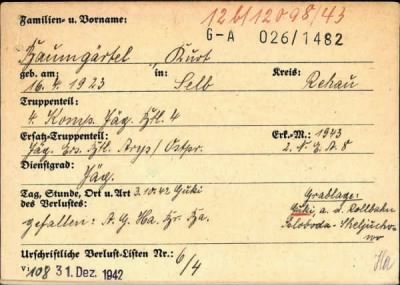 Familien- u. Vorname: 12 b/12098/43
G-A 026/1482
Baumgärtel Kurt
geb. am: in: Kreis:
16. 4. 1923 Selb Rehau
Truppenteil:
4. Komp. Jäg. Btl. 4
Ersatz-Truppenteil: Erk.-M.: 1943
Jäg. Ers. Btl. Arys/Ostpr.
Dienstgrad:
Jäg.
Tag, Stunde, Ort u. Art 3.10.42 Guki
des Verlustes:
gefallen: A. G.
Grablage:
Guki, a. d. Rollbahn
Sloboda-
Urschriftliche Verlust-Listen Nr.: 6/4
108 31. Dez. 1942